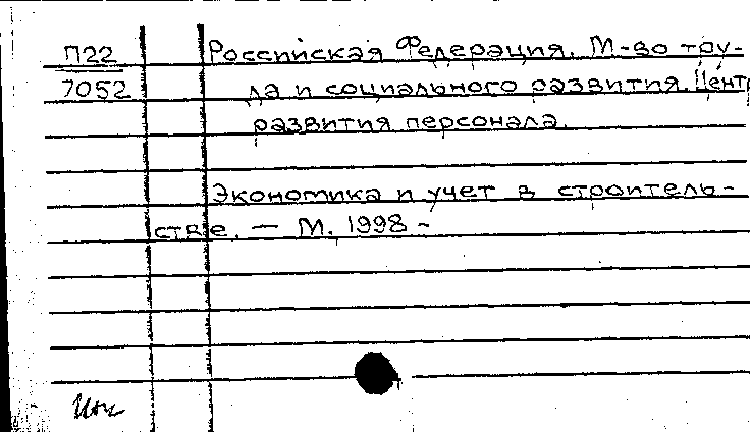 П22
7052
Российская Федерация. М-во тру-
да и социального развития. Центр
развития персонала.
Экономика и учет в строитель-
стве. — М. 1998 -